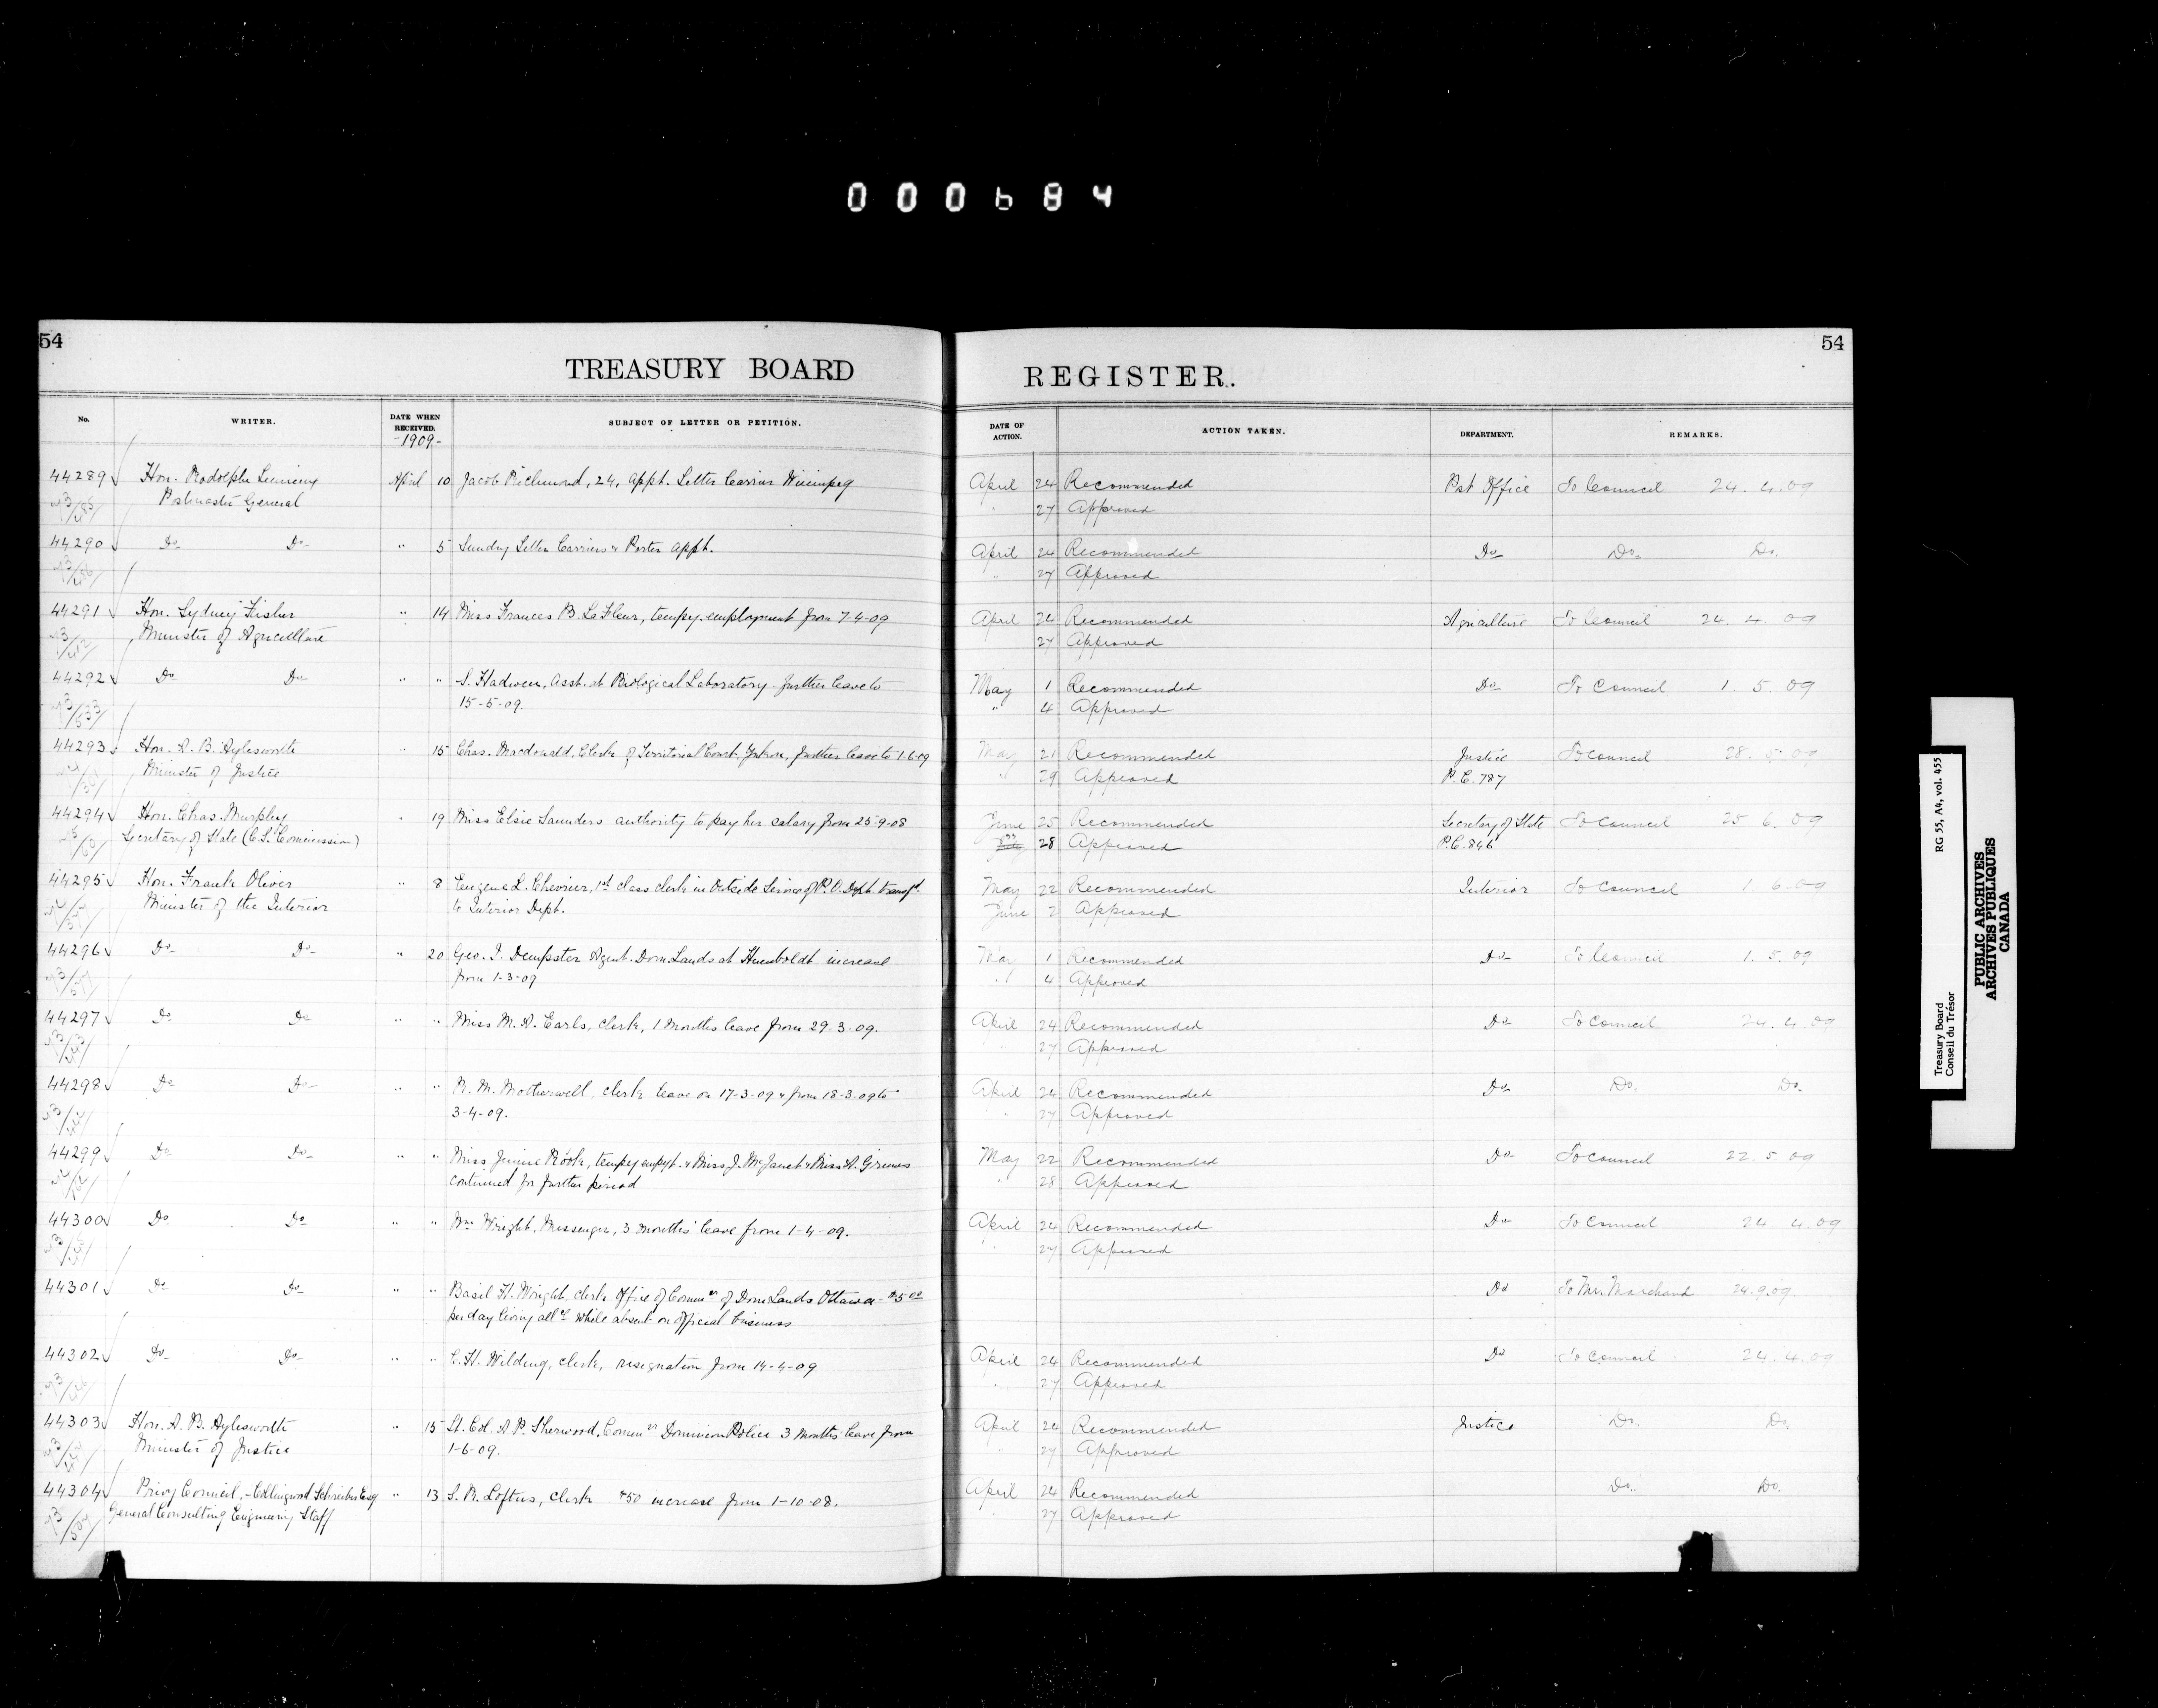 000684
54
TREASURY BOARD
No.
WRITER.
DATE WHEN RECEIVED.
-1909-
SUBJECT OF LETTER OR PETITION.
44289 Hon. Rodolphe Lemieux April 10 Jacob Richmond, 24, appt. Letter Carrier Winnipeg
Postmaster General
44290 Do- Do- " 5 Sundry Letter Carriers & Porter appt.
44291 Hon. Sydney Fisher " 14 Miss Frances B. LaFleur, tempy. employment from 7-4-09
Minister of Agriculture
44292 Do- Do- " " S. Hadwen, Asst. at Biological Laboratory further leave to
15-5-09.
44293 Hon. A. B. Aylesworth " 15 Chas. Macdonald, Clerk of Territorial Court, Yukon, further leave to 1-6-09
Minister of Justice
44294 Hon. Chas. Murphy " 19 Miss Elsie Saunders authority to pay her salary from 25-9-08
Secretary of State (C.S. Commission)
44295 Hon. Frank Oliver " 8 Eugene L. Chevrier, 1st class clerk in Outside Service of P.O. Dept. transf.
Minister of the Interior to Interior Dept.
44296 Do- Do- " 20 Geo. I. Dempster Agent Dom Lands at Humboldt increase
from 1-3-09
44297 Do- Do- " " Miss M. A. Earls, clerk, 1 months leave from 29-3-09.
44298 Do- Do- " " R. M. Motherwell, clerk leave on 17-3-09 & from 18-3-09 to
3-4-09.
44299 Do- Do- " " Miss Jennie Rook, tempy empyt. & Miss J. McJanet & Miss A. Grimes
continued for further period
44300 Do- Do- " " Wm Wright, Messenger, 3 months' leave from 1-4-09.
44301 Do- Do- " " Basil H. Wright, clerk Office of Commr of Dom Lands Ottawa - $5.00
per day living allce while absent on official business
44302 Do- Do- " " C. H. Wilding, clerk, resignation from 14-4-09
44303 Hon. A. B. Aylesworth " 15 Lt. Col. A. P. Sherwood, Commr Dominion Police 3 months' leave from
Minister of Justice 1-6-09.
44304 Privy Council, - Collingwood Schreiber Esq " 13 S. B. Loftus, clerk $50 increase from 1-10-08.
General Consulting Engineering Staff
54
REGISTER.
DATE OF ACTION.
ACTION TAKEN.
DEPARTMENT.
REMARKS.
April 24 Recommended Post Office To Council 24. 4. 09
" 27 Approved
April 24 Recommended Do- Do. Do.
" 27 Approved
April 24 Recommended Agriculture To Council 24. 4. 09
27 Approved
May 1 Recommended Do- To Council 1. 5. 09
" 4 Approved
May 21 Recommended Justice To Council 28. 5. 09
" 29 Approved P.C. 787
June 25 Recommended Secretary of State To Council 25 6. 09
28 Approved P.C. 846
May 22 Recommended Interior To Council 1. 6. 09
June 2 Approved
May 1 Recommended Do- To Council 1. 5. 09
" 4 Approved
April 24 Recommended Do- To Council 24. 4. 09
" 27 Approved
April 24 Recommended Do- Do. Do.
" 27 Approved
May 22 Recommended Do- To Council 22. 5. 09
" 28 Approved
April 24 Recommended Do- To Council 24 4. 09
" 27 Approved
Do To Mr. Marchand 24.9.09.
April 24 Recommended Do To Council 24. 4. 09
" 27 Approved
April 24 Recommended Justice Do. Do.
" 27 Approved
April 24 Recommended Do. Do.
" 27 Approved
Treasury Board RG 55, A4, vol. 455
Conseil du Trésor
PUBLIC ARCHIVES
ARCHIVES PUBLIQUES
CANADA